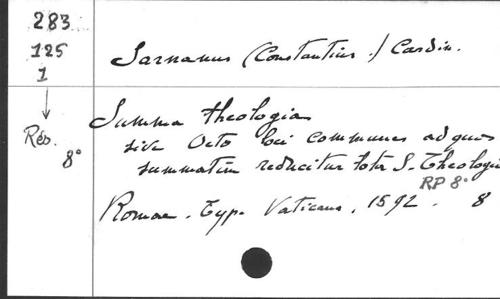 283
125
1
Res.
8°
Sarnanus (Constantius) Cardin.
Summa theologia
sive Octo loci communes ad quos
summatim reducitur tota S. Theologi
RP 8°
Romae. Typ. Vaticana, 1592. 8